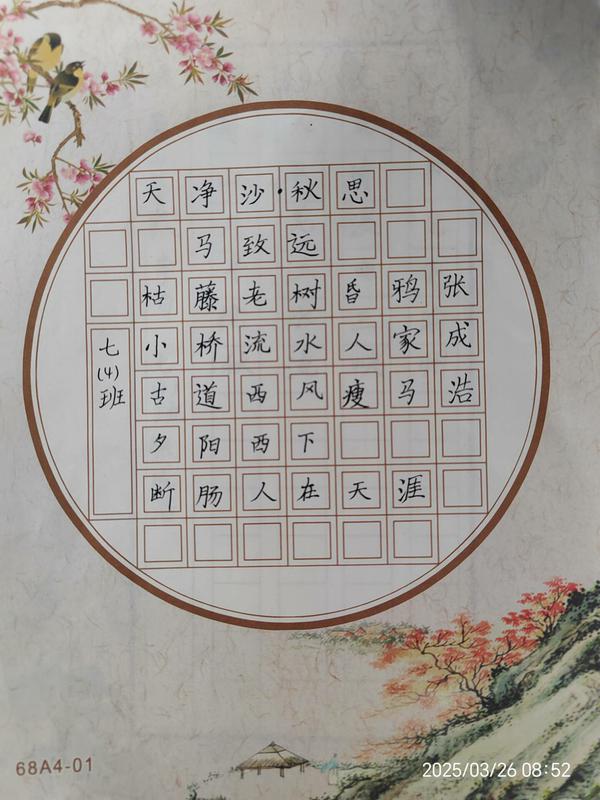 天净沙·秋思
马致远
枯藤老树昏鸦
小桥流水人家
古道西风瘦马
夕阳西下
断肠人在天涯
七(4)班
张成浩
68A4-01
2025/03/26 08:52